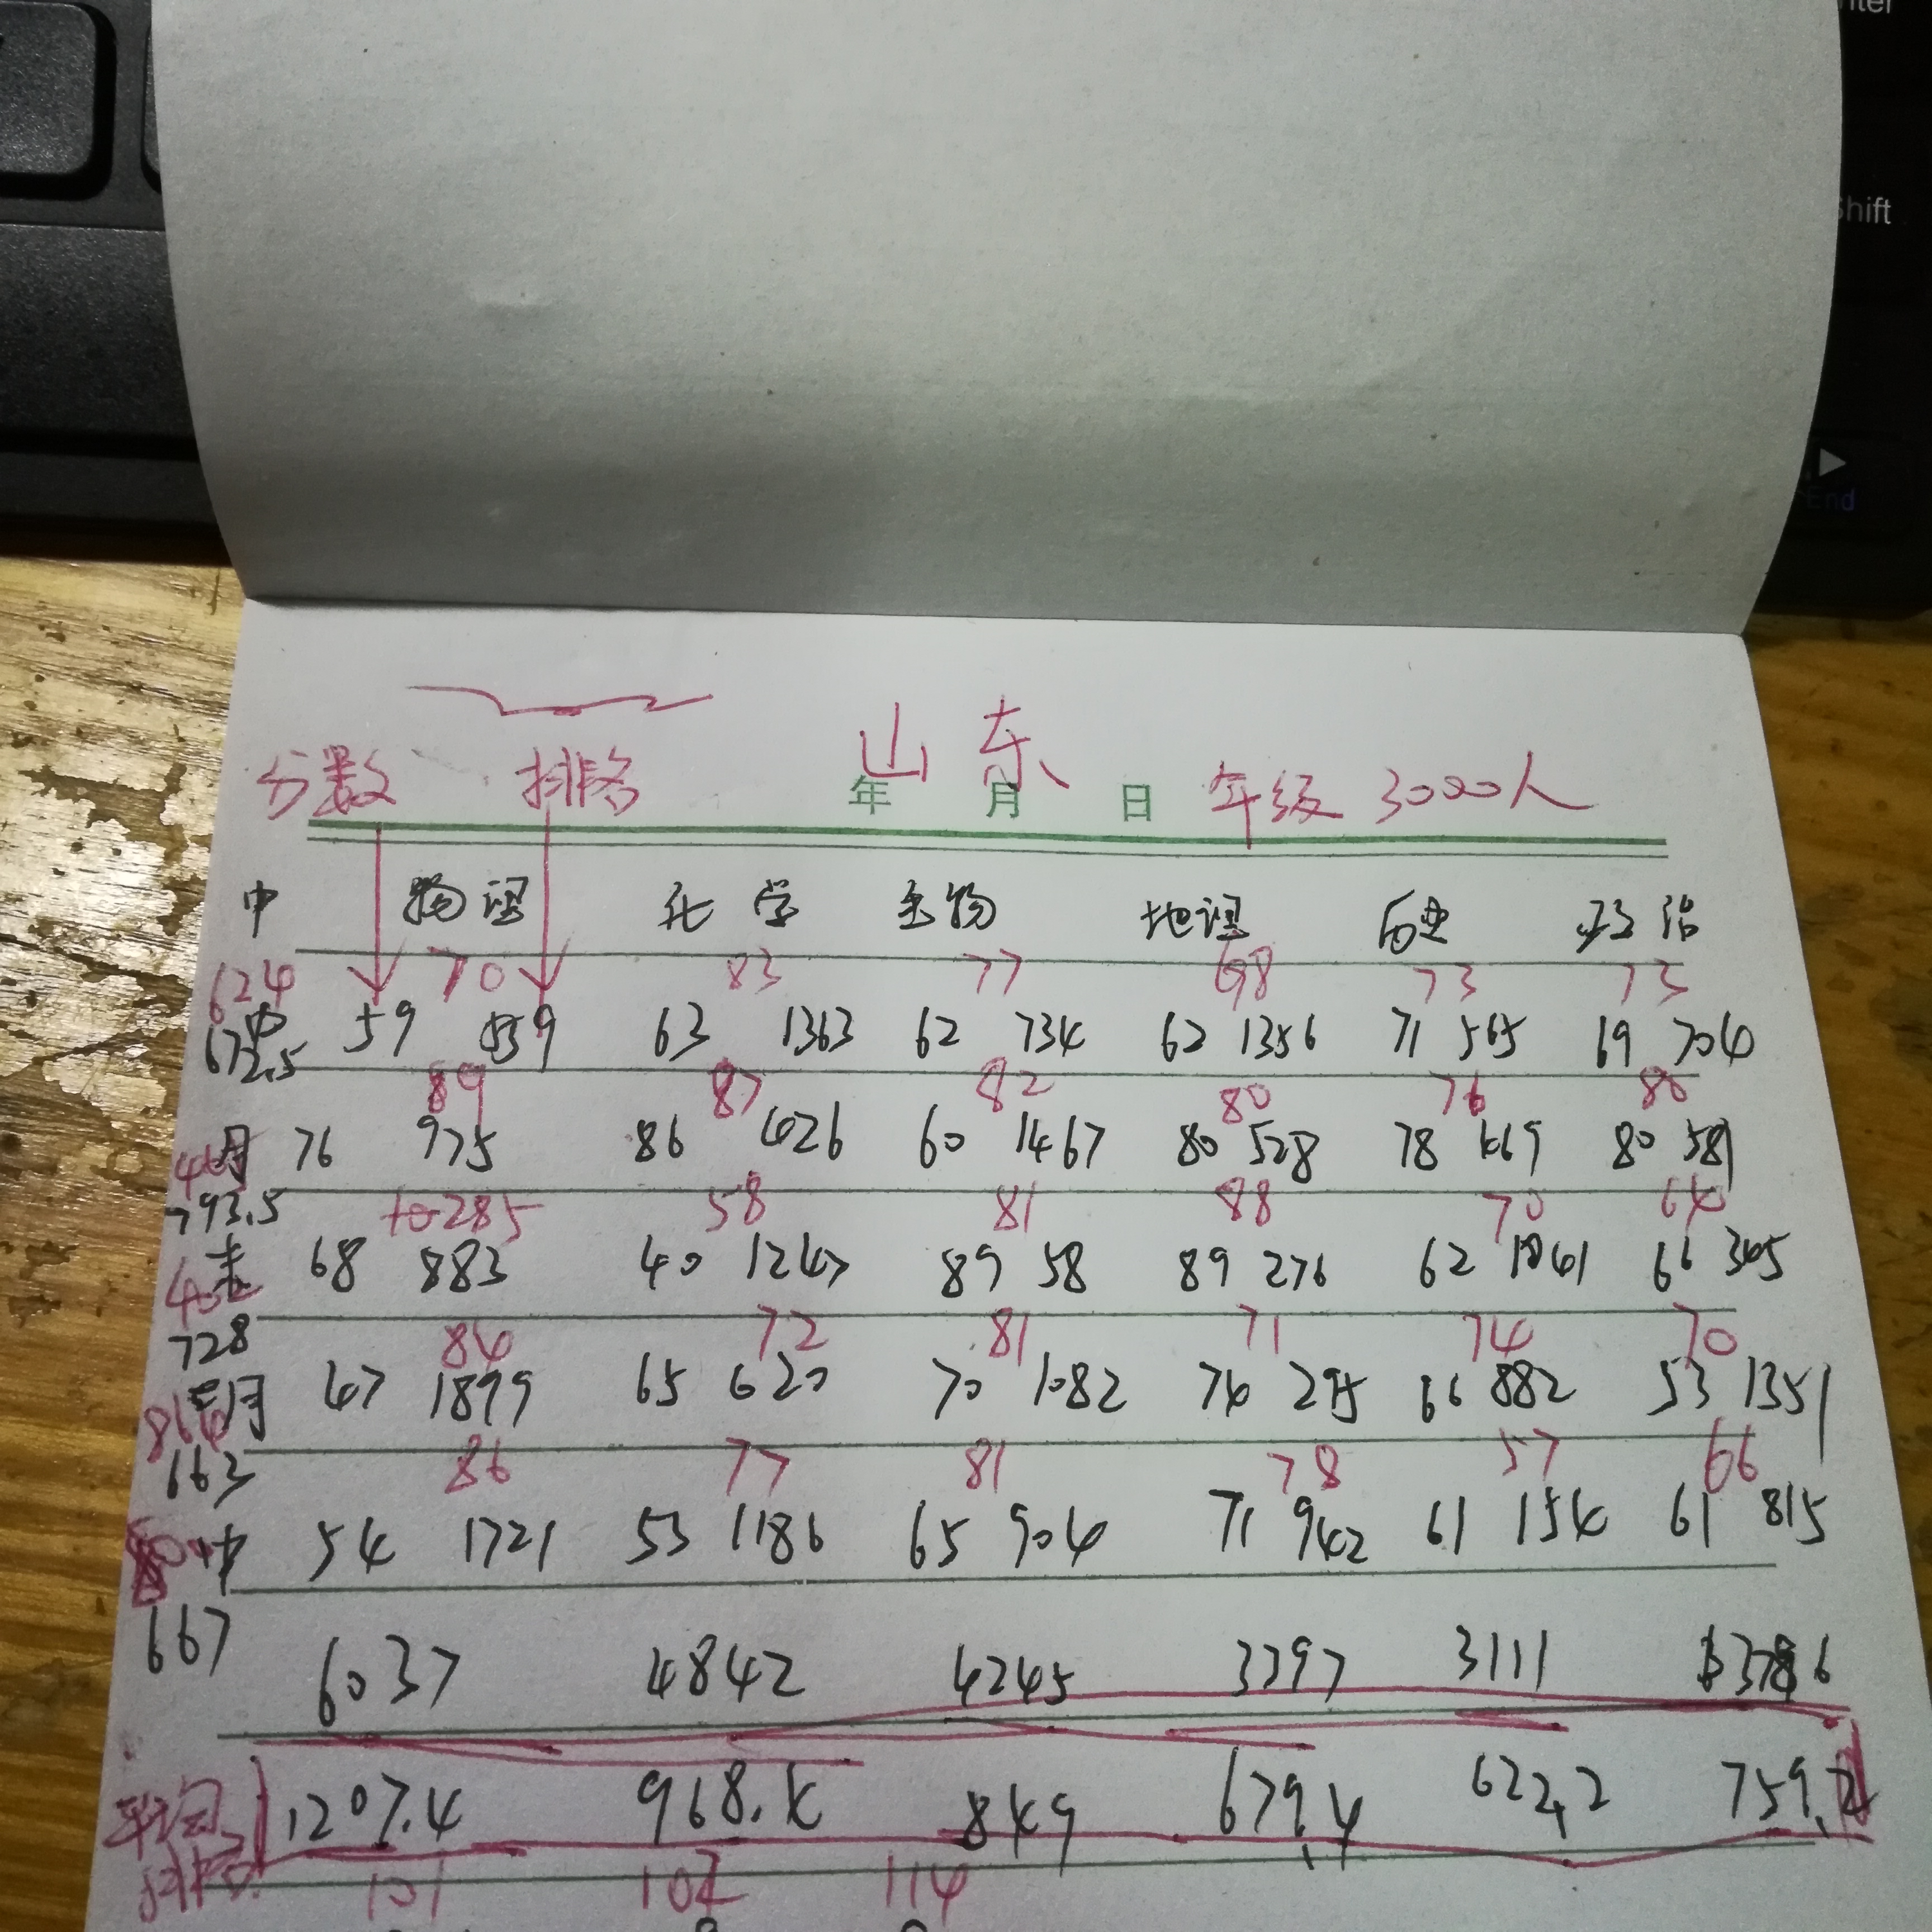 Shift
End
山东
分数 排名 年 月 日 年级 3000人
中 物理 化学 生物 地理 历史 政治
624 70 83 77 68 73 73
中 59 559 63 1363 62 734 62 1356 71 565 69 704
672.5
89 87 82 80 76 80
月 76 975 86 426 60 1467 80 528 78 469 80 581
793.5
285 58 81 88 70 64
68 883 40 1247 89 58 89 276 62 1041 66 345
728
84 72 81 71 74 70
月 47 1899 65 620 70 1082 74 295 66 882 53 1351
663
86 77 81 78 57 66
中 54 1721 53 1186 65 904 71 942 61 154 61 815
667
6037 4842 4245 3397 3111 3786
平均 1207.4 968.4 849 679.4 622.2 759.2
排名
101 102 114